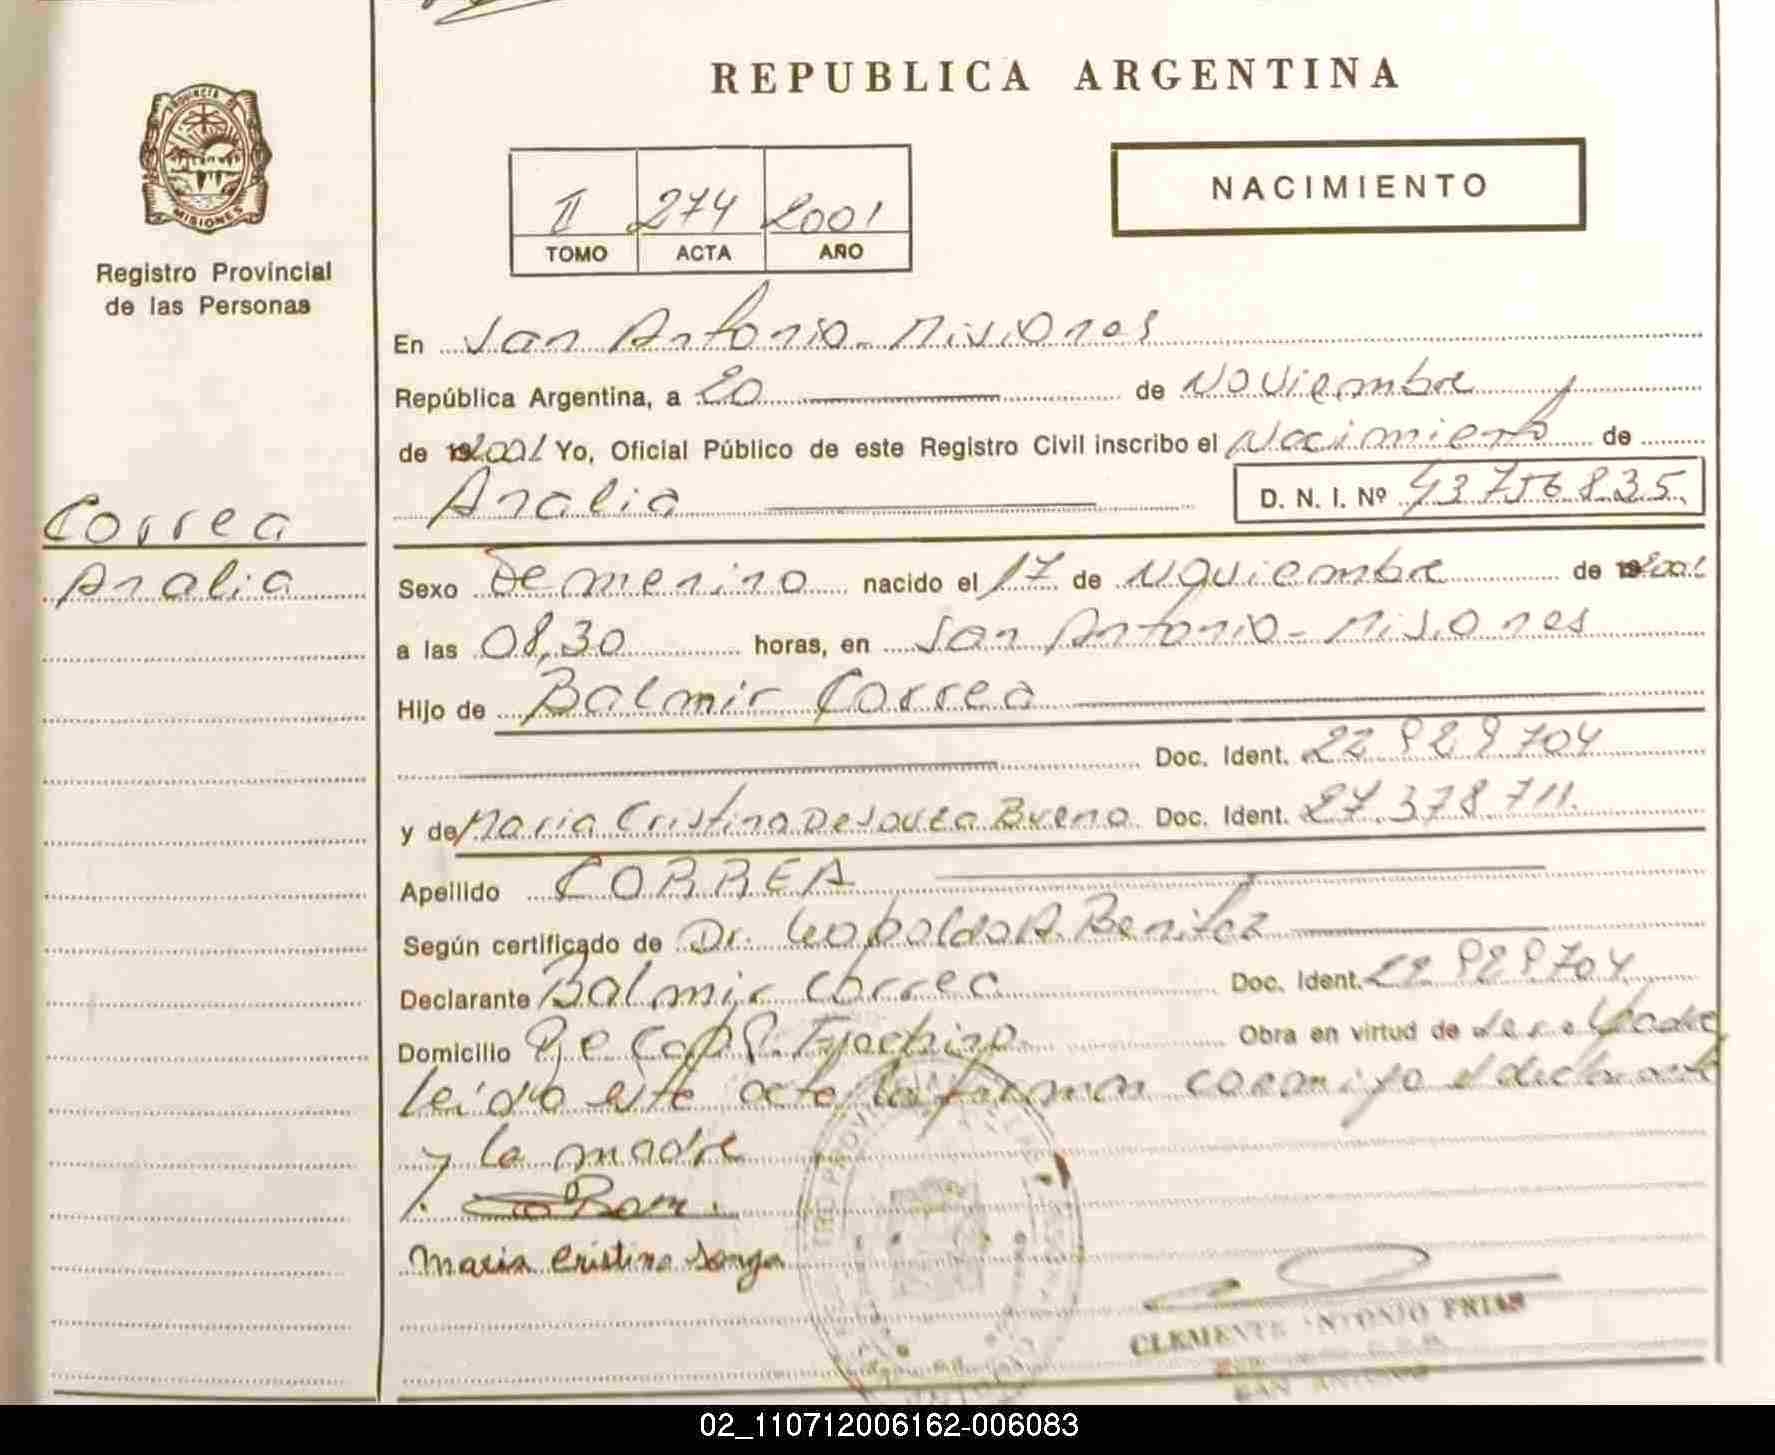 REPUBLICA ARGENTINA
PROVINCIA DE
MISIONES
Registro Provincial
de las Personas
II 274 2001
TOMO ACTA AÑO
NACIMIENTO
En San Antonio - Misiones
República Argentina, a 20 de Noviembre
de 192001 Yo, Oficial Público de este Registro Civil inscribo el Nacimiento de
Analia D. N. I. Nº 43756835
Correa
Analia
Sexo Femenino nacido el 17 de Noviembre de 192001
a las 08,30 horas, en San Antonio - Misiones
Hijo de Balmir Correa
Doc. Ident. 22 929 704
y de Maria Cristina Desouza Bueno Doc. Ident. 27.378.711.
Apellido CORREA
Según certificado de Dr. Leopoldo A. Benitez
Declarante Balmir Correa Doc. Ident. 22 929704
Domicilio Pje Cab. Obra en virtud de ser el Padre
Leido este acta la firman conmigo el declarante
y la madre
Maria Cristina
CLEMENTE ANTONIO FRIAS
SAN ANTONIO
02_110712006162-006083